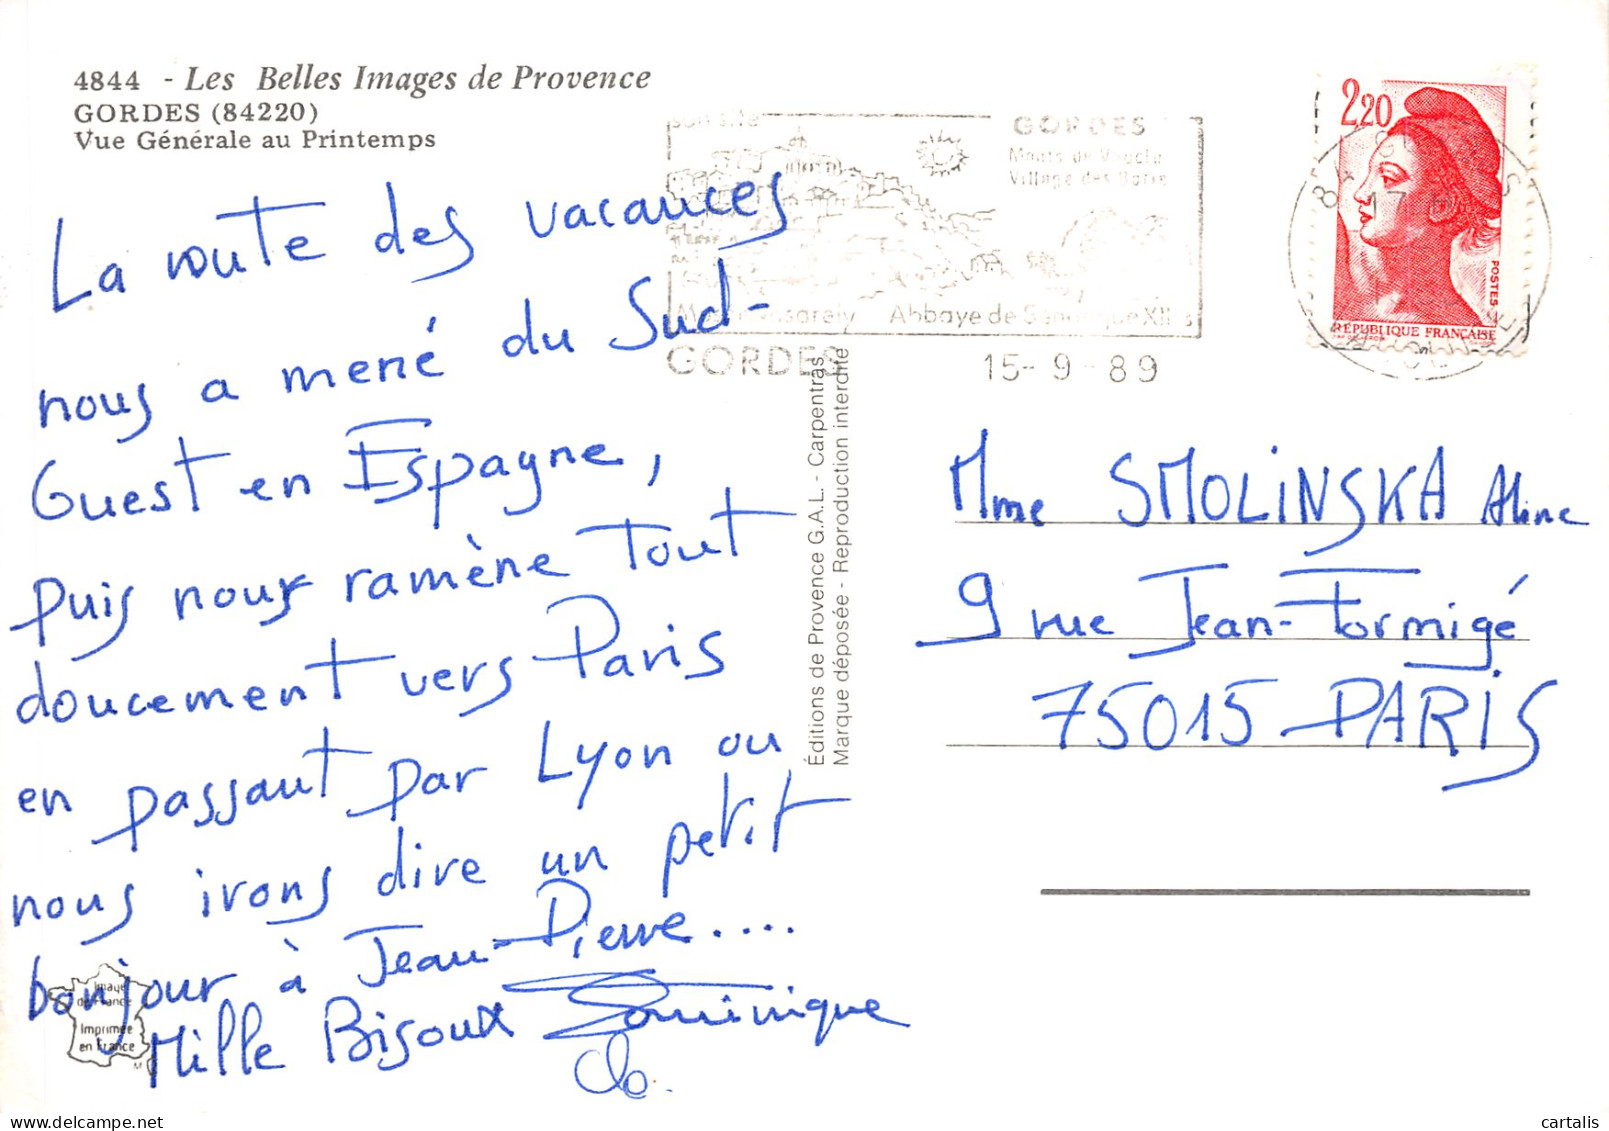 4844 - Les Belles Images de Provence
GORDES (84220)
Vue Générale au Printemps
La route des vacances
nous a mené du Sud-
Ouest en Espagne,
puis nous ramène tout
doucement vers Paris
en passant par Lyon ou
nous irons dire un petit
bonjour à Jean-Pierre....
Mille Bisoux Dominique
Image
de France
Imprimée
en France
Éditions de Provence G.A.L. - Carpentras
Marque déposée - Reproduction interdite
son site
GORDES
Monts de Vaucluse
Village des Bories
Musée Vasarely Abbaye de Sénanque XIIe s
GORDES
15-9-89
2,20
POSTES
RÉPUBLIQUE FRANÇAISE
Mme SMOLINSKA Aline
9 rue Jean-Formigé
75015 PARIS
cartalis